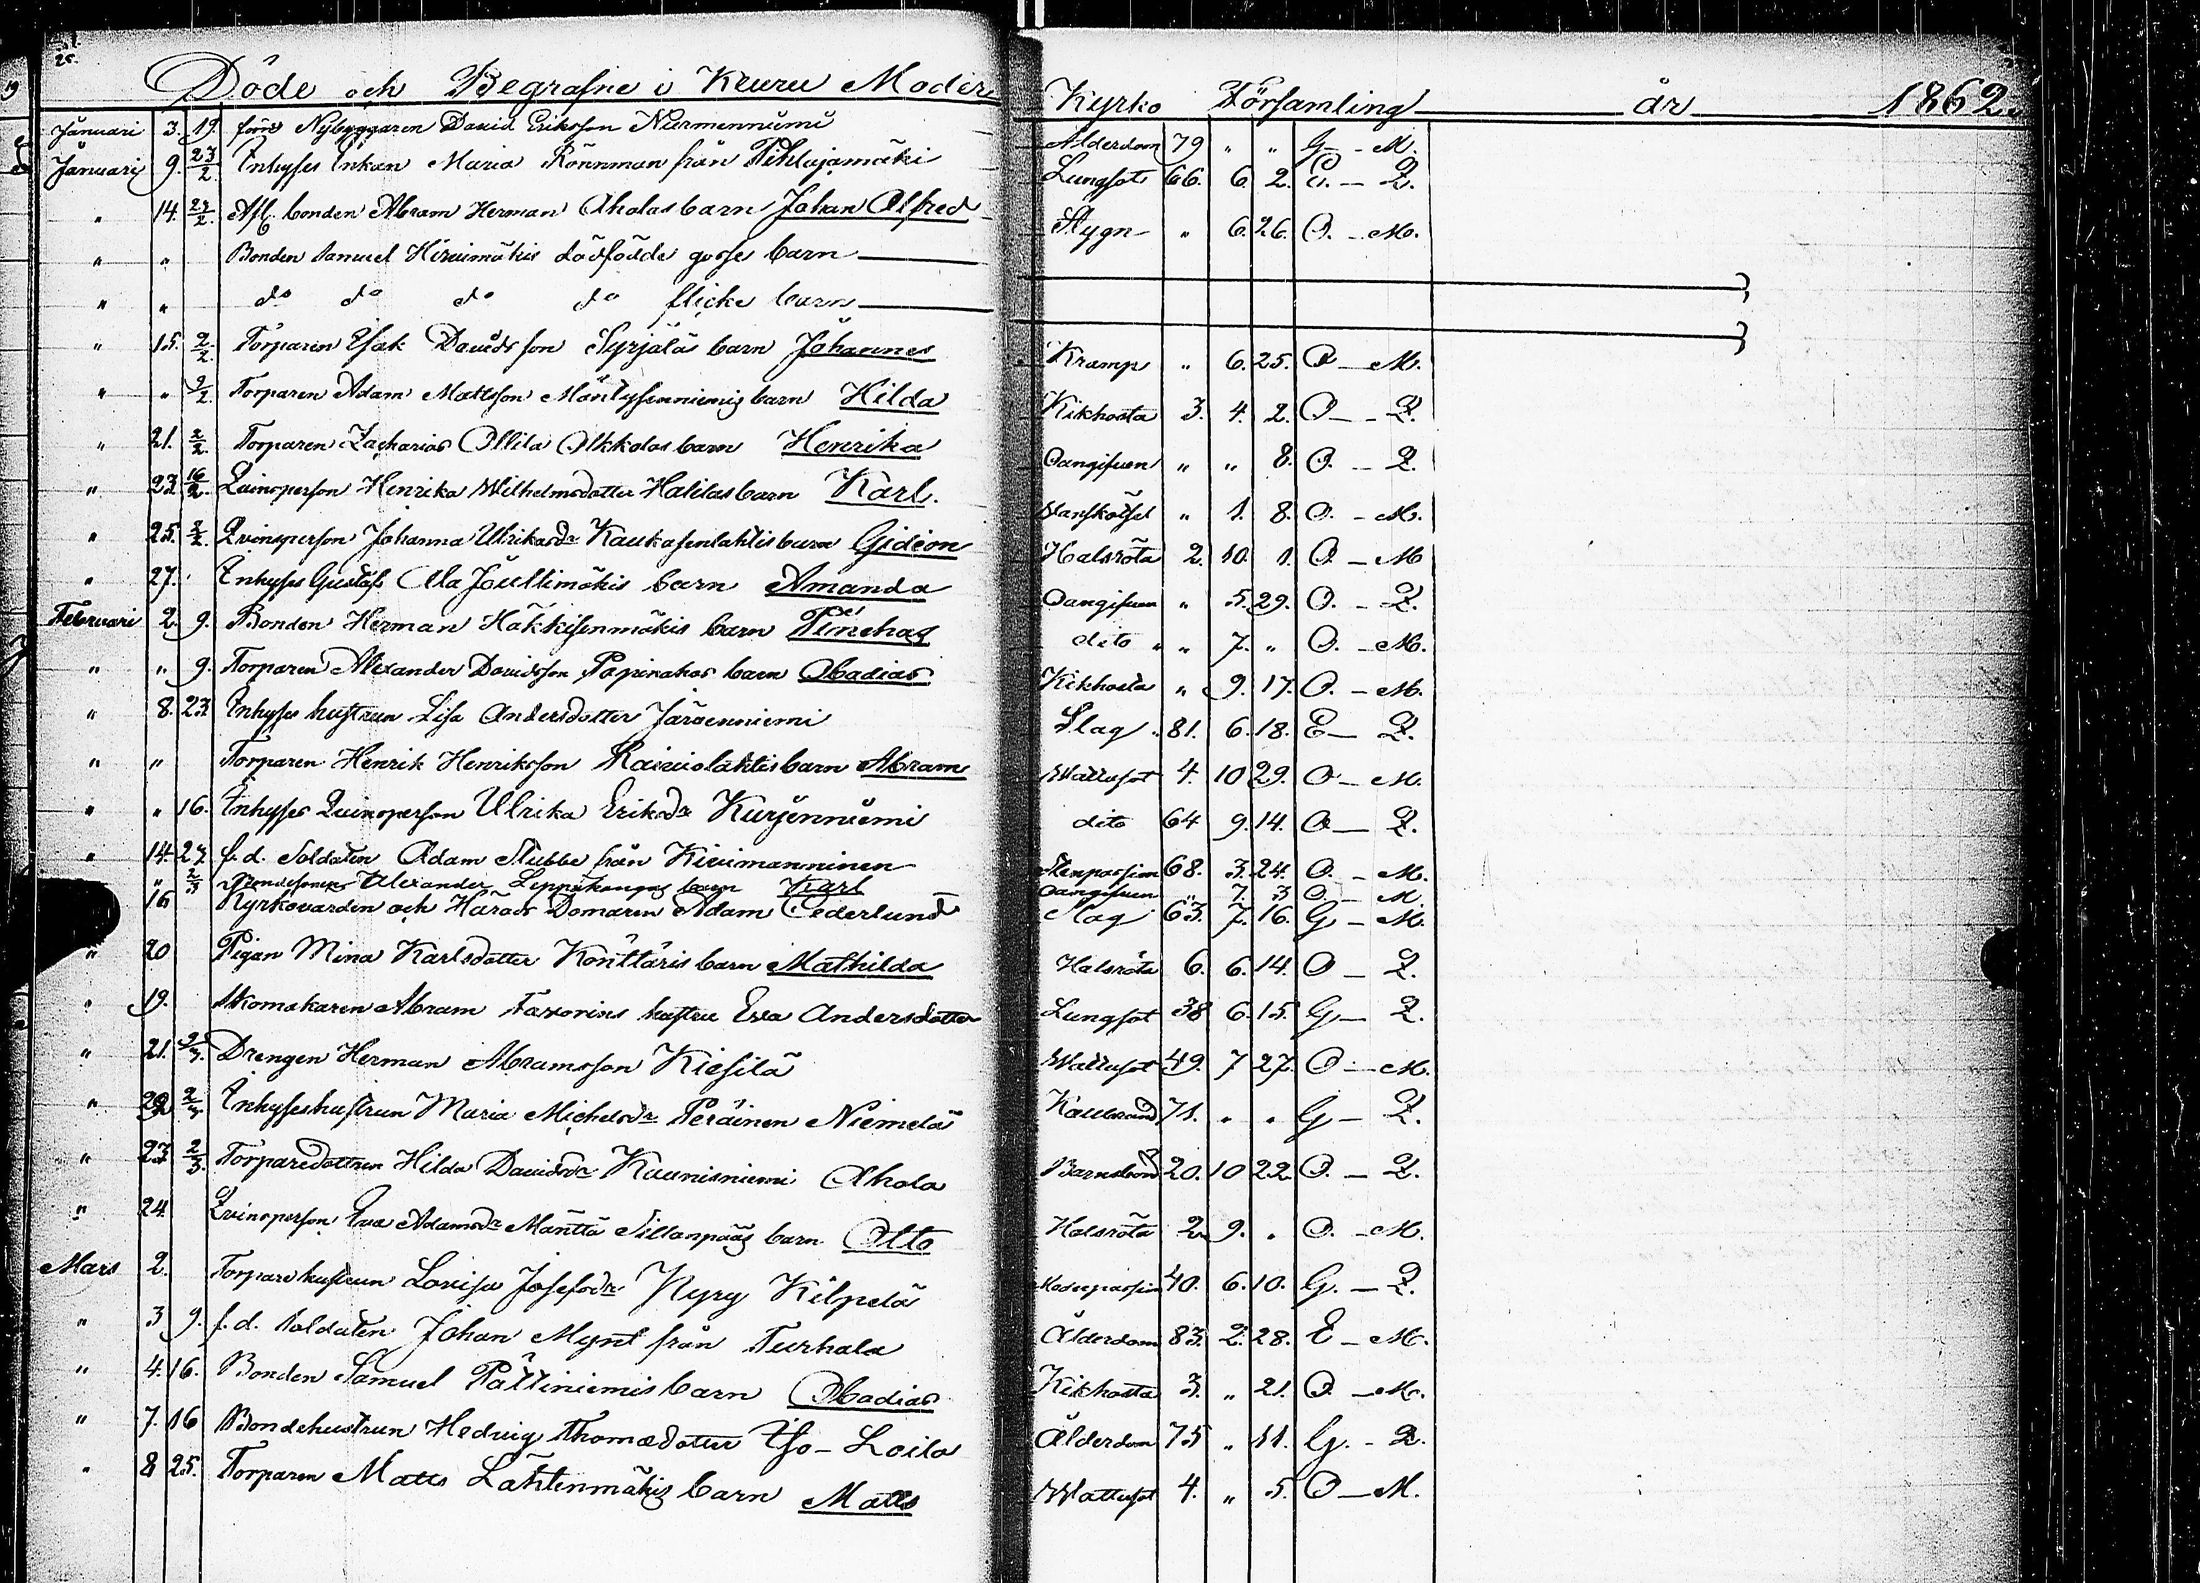 25.
Döde och Begrafne i Keuru Moder Kyrko Församling år 1862.
Januari 3. 19. förre Nybyggaren David Eriksson Nurmenniemi Ålderdom 79 " " G - M.
Januari 9. 23/2. Inhyses Enkan Maria Rönnman från Pihlajamäki Lungsot 66. 6. 2. E. - Q.
" 14. 23/2. Afl. bonden Abram Herman Aholas barn Johan Alfred Stygn " 6. 26. O. - M.
" " Bonden Samuel Hirvimäkis dödfödde gosse barn
" " do do do do flicke barn
" 15. 2/2. Torparen Isak Davidsson Syrjäläs barn Johannes Kramp " 6. 25. O - M.
" " 9/2. Torparen Adam Mattsson Mäntysenniemis barn Hilda Kikhosta 3. 4. 2. O - Q.
" 21. 2/2. Torparen Zacharias Ollila Akkolas barn Henrika Oangifven " " 8. O. - Q.
" 23. 16/2. Qvinsperson Henrika Wilhelmsdotter Halilas barn Karl. Vanskötsel " 1. 8. O. - M.
" 25. 2/2. Qvinsperson Johanna Ulrikasdr Kaukasenlahtis barn Gideon Halsröta 2. 10. 1. O - M
" 27. Inhyses Gustaf Ala Jouttimäkis barn Amanda Oangifven " 5. 29. O. - Q.
Februari 2. 9. Bonden Herman Häkkisenmäkis barn Pinehas dito " " 7. " O. - M.
" " 9. Torparen Alexander Davidsson Papinahos barn Obadias Kikhosta " 9. 17. O. - M.
" 8. 23. Inhyses hustrun Lisa Andersdotter Järvenniemi Slag 81. 6. 18. E - Q.
" " Torparen Henrik Henriksson Raiviolahtis barn Abram Wattusot 4. 10 29. O - M.
" " 16. Inhyses Qvinsperson Ulrika Eriksdr Kurjenniemi dito 64 9. 14. O - Q.
" 14. 27. f.d. Soldaten Adam Stubbe från Kivimanninen Stenpassion 68. 3. 24. O. - M.
" " 2/3 Bondesonen Alexander Leppäkangas barn Karl Oangifven " 7. 3 O. - M.
16 Kyrkovärden och Härads Domaren Adam Cederlund Slag 63. 7. 16. G - M.
" 20 Pigan Mina Karlsdotter Könttäris barn Mathilda Halsröta 6. 6. 14. O - Q.
" 19. Skomakaren Abram Favorins hustru Eva Andersdotter Lungsot 38 6. 15. G - Q.
" 21. 2/3. Drengen Herman Abramsson Kiesilä Wattusot 49. 7 27. O - M.
" 22 2/3. Inhyseshustrun Maria Michelsdr Peräinen Niemelä Kallbrand 71. " " G - Q.
" 23 2/3. Torparedottren Hilda Davidsdr Kaunisniemi Ahola Barnsbörd 20. 10 22. O. - Q.
" 24. Qvinsperson Eva Adamsdr Mänttä Sillanpääs barn Otto Halsröta 2. 9. " O. - M.
Mars 2. Torpare hustrun Lovisa Josefsdr Nyry Kilpelä Moderpassion 40. 6. 10. G. - Q.
" 3 9. f.d. Soldaten Johan Mynt från Turhala Ålderdom 83. 2. 28. E - M.
" 4. 16. Bonden Samuel Pättiniemis barn Obadias Kikhosta 3. " 21. O. - M.
" 7. 16 Bondehustrun Hedvig Thomædotter Iso-Loila Ålderdom 75 " 11. G. - Q.
" 8 25. Torparen Matts Lähtenmäkis barn Matts Wattusot 4. " 5. O - M.